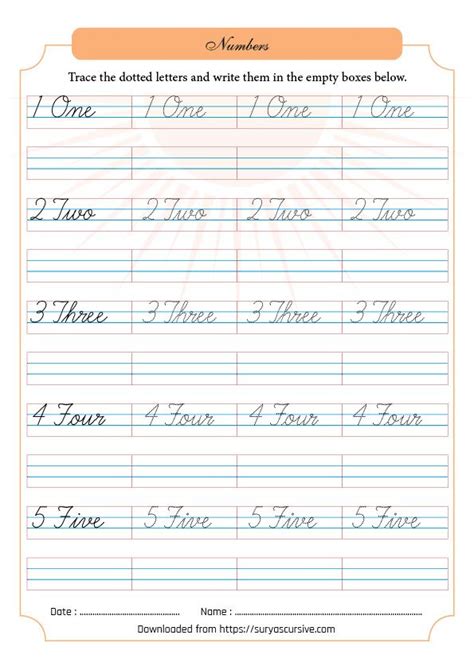 Numbers
Trace the dotted letters and write them in the empty boxes below.
1 One 1 One 1 One 1 One
2 Two 2 Two 2 Two 2 Two
3 Three 3 Three 3 Three 3 Three
4 Four 4 Four 4 Four 4 Four
5 Five 5 Five 5 Five 5 Five
Date : ........................................ Name : ........................................................
Downloaded from https://suryascursive.com